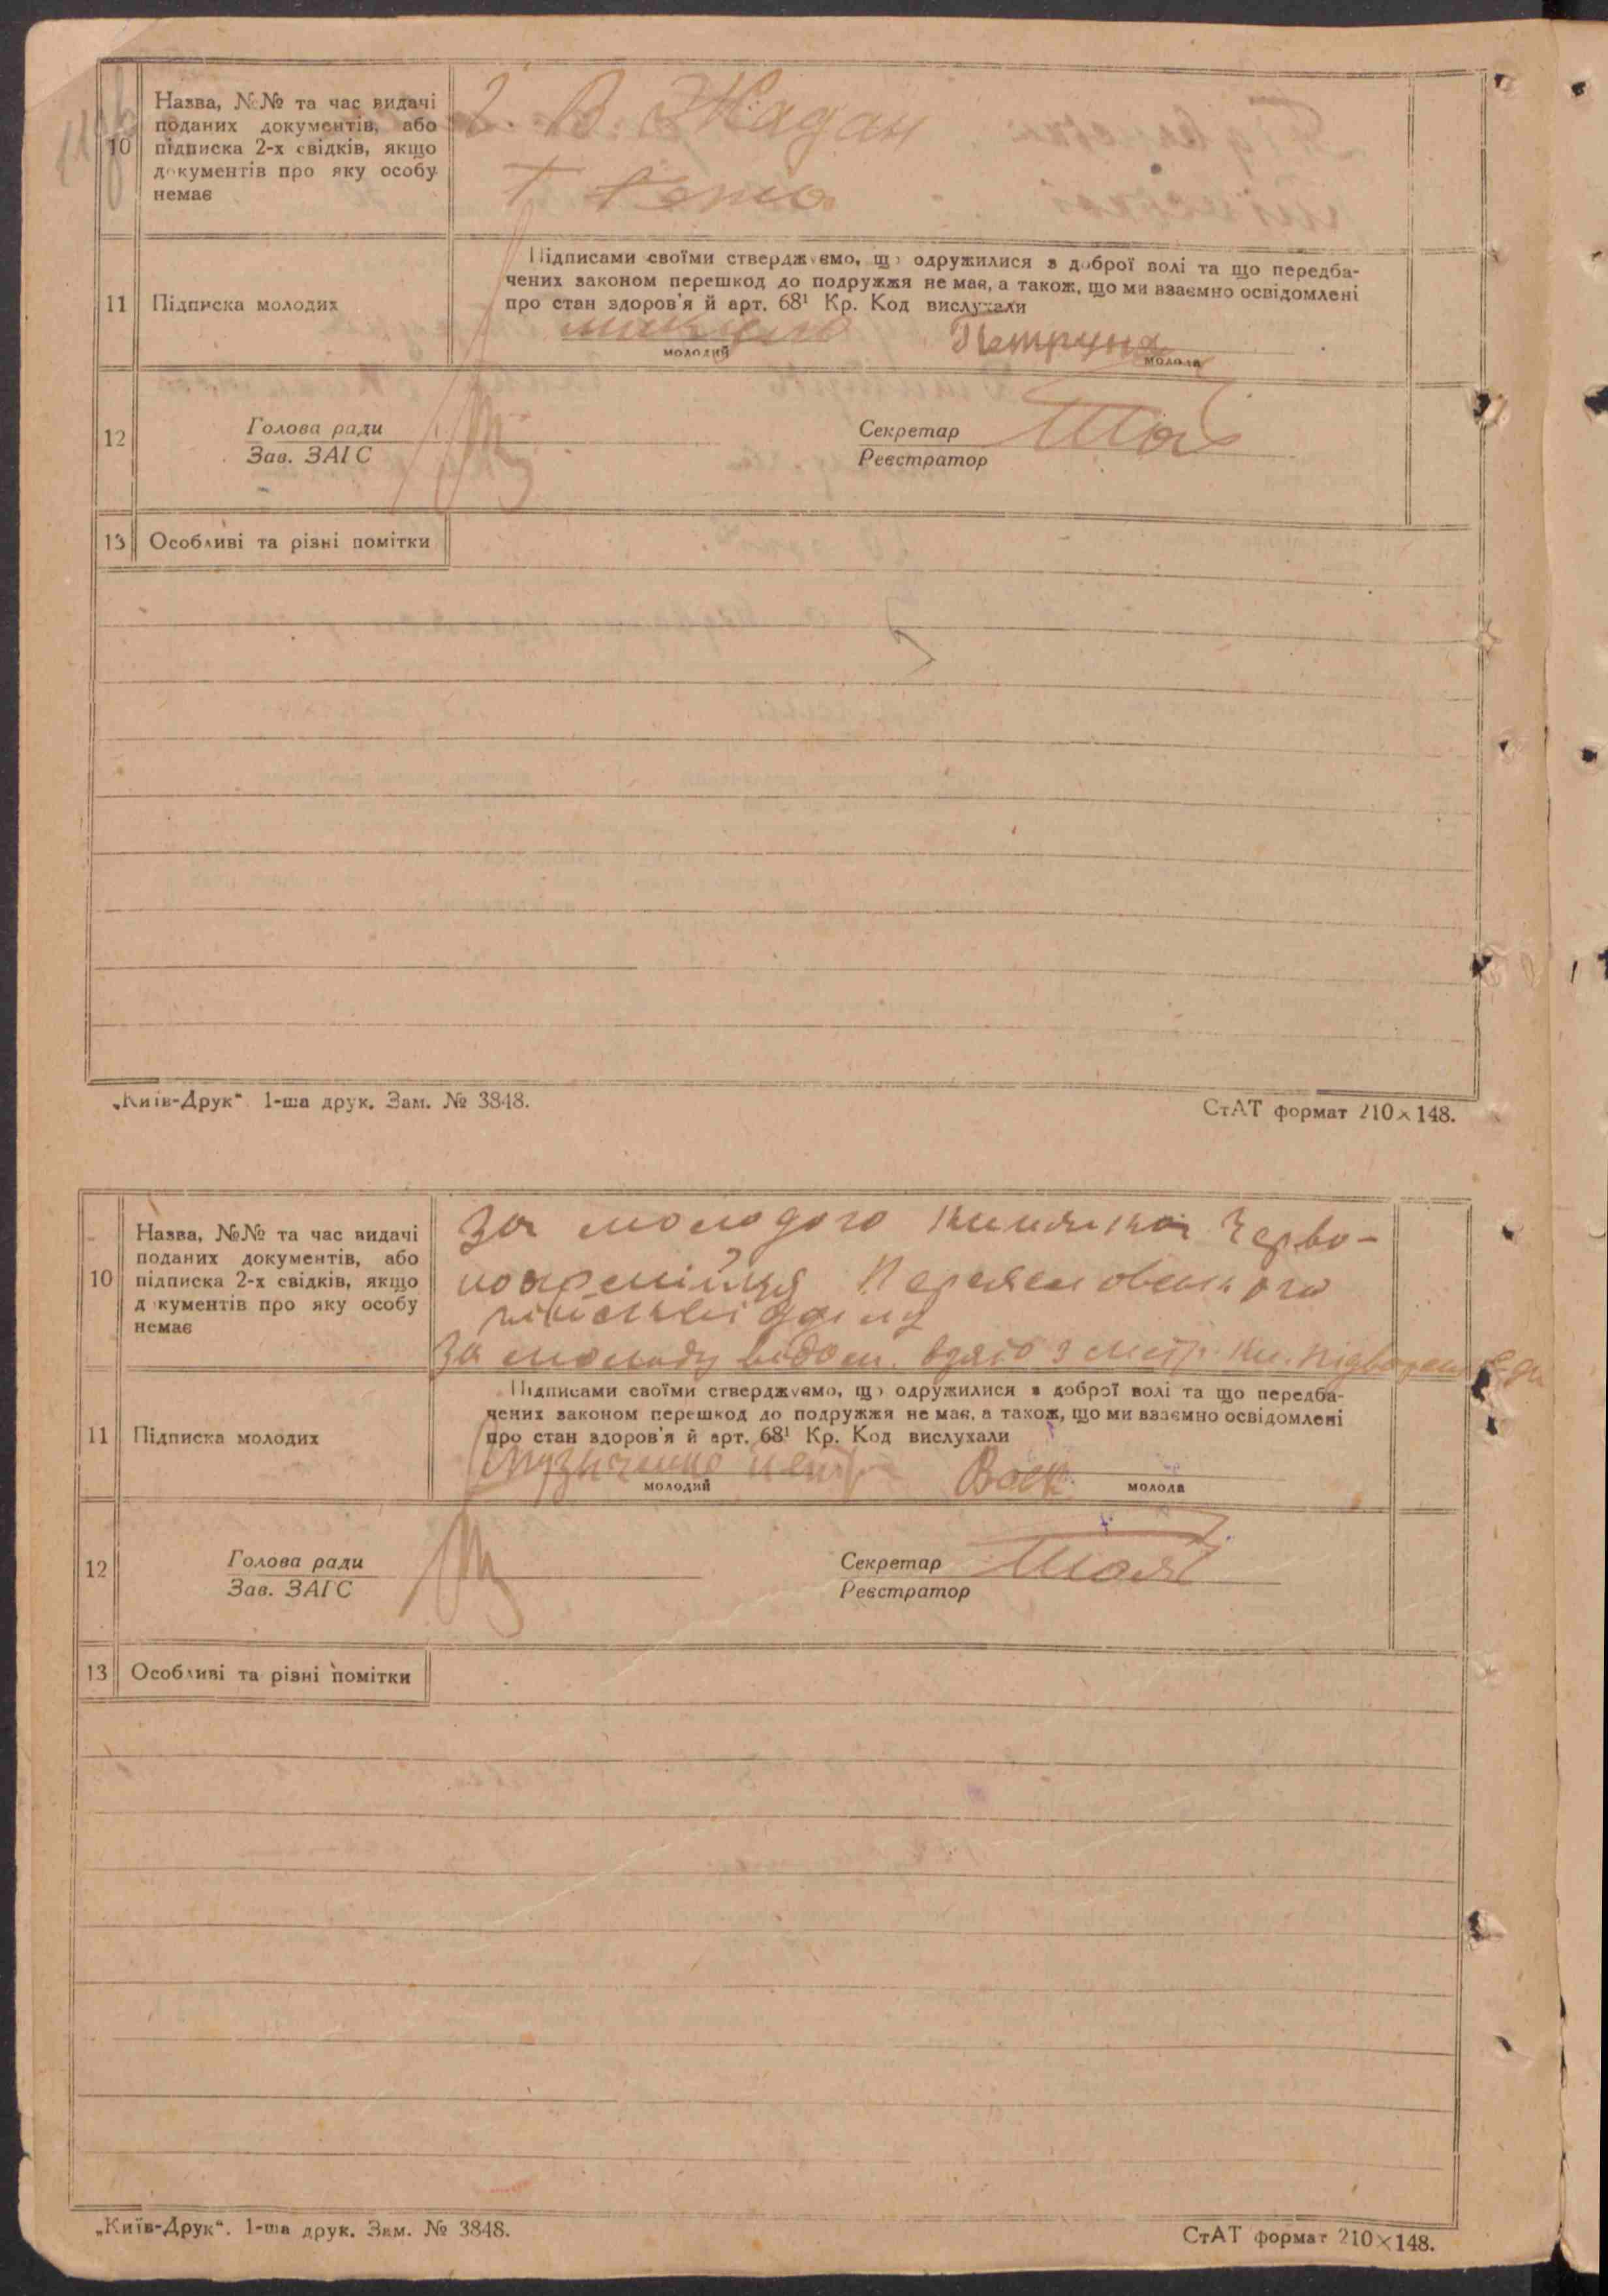 10
Назва, №№ та час видачі
поданих документів, або
підписка 2-х свідків, якщо
документів про яку особу
немає
2. В. Жадан
11
Підписка молодих
Підписами своїми стверджуємо, що одружилися з доброї волі та що передба-
чених законом перешкод до подружжя не має, а також, що ми взаємно освідомлені
про стан здоров'я й арт. 68¹ Кр. Код вислухали
молодий
Петруня
молода
12
Голова ради
Зав. ЗАГС
Секретар
Реєстратор
13
Особливі та різні помітки
„Київ-Друк“ 1-ша друк. Зам. № 3848.
СтАТ формат 210×148.
10
Назва, №№ та час видачі
поданих документів, або
підписка 2-х свідків, якщо
документів про яку особу
немає
За молодого книжка Черво-
ноармійця
За молоду видом. взято з
11
Підписка молодих
Підписами своїми стверджуємо, що одружилися з доброї волі та що передба-
чених законом перешкод до подружжя не має, а також, що ми взаємно освідомлені
про стан здоров'я й арт. 68¹ Кр. Код вислухали
Музиченко
молодий
молода
12
Голова ради
Зав. ЗАГС
Секретар
Реєстратор
13
Особливі та різні помітки
„Київ-Друк“. 1-ша друк. Зам. № 3848.
СтАТ формат 210×148.